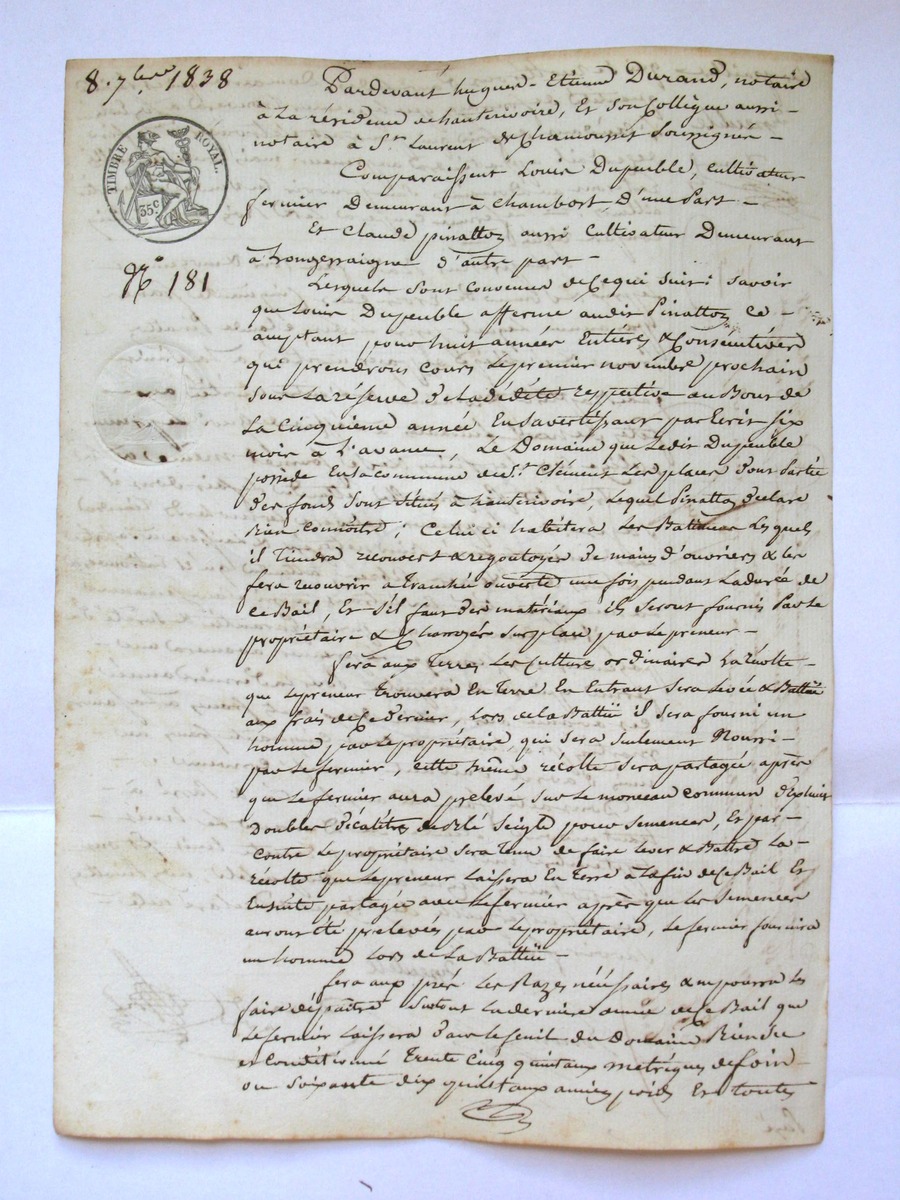 8. 7bre 1838
Pardevant hugues-Etienne Durand, notaire
à La résidence de hauterivoire, Et son Collègue aussi-
notaire à St Laurent de Chamousset Soussignés-
TIMBRE ROYAL.
35c
Comparaissent Louis Dupeuble, cultivateur
fermier Demeurant à Chambost, d'une Part-
Et Claude pinatton aussi Cultivateur Demeurant
N° 181
à Longessaigne d'autre part-
Lesquels sont convenus de Ce qui suit: savoir
que Louis Dupeuble afferme audit Pinatton ce-
acceptant pour huit années Entières & Consécutives
qui prendrons cours Le premier novembre prochain
sous La réserve de La dédite respective au Bout de
La Cinquieme année En s'avertissant par Ecrit six
mois à L'avance, Le Domaine que Ledit Dupeuble
possède En La commune de St Clément Les places dont Partie
des fonds sont situés à hauterivoire, Lequel Pinatton déclare
Bien connoitre; Celui ci habitera Les Batimens Lesquels
il Tiendra recouvert & regoutoyés de mains d'ouvriers & les
fera recouvrir à Tranchée ouverte une fois pendant La durée de
ce Bail, Et s'il faut des matériaux ils seront fournis Par Le
propriétaire & Charroyés sur place par Le preneur-
fera aux Terres Les Culture ordinaires La récolte-
que Le preneur Trouvera En Terre En Entrant sera Levée & Battue
aux frais de Ce dernier, Lors de La Battue il sera fourni un
homme par Le propriétaire, qui sera seulement Nourri-
par Le fermier, cette même récolte sera partagée après
que Le fermier aura prélevé sur Le monceau commun
Doubles décalitres de Blé seigle pour semences, Et par-
contre Le propriétaire sera Tenu de faire Lever & Battre La-
récolte que Le preneur Laissera En Terre à La fin de Ce Bail Et
Ensuite partagée avec Le fermier après que Les semences
auront été prélevées par Le propriétaire, Le fermier fournira
un homme Lors de La Battue-
fera aux prés Les Razes nécéssaires & ne pourra Les
faire dépaitre surtout La dernière année de Ce Bail que
Le fermier Laissera dans Le fenil du Domaine
et Conditionné Trente Cinq quintaux métriques de foin
ou soixante dix quintaux anciens poids Et toutes